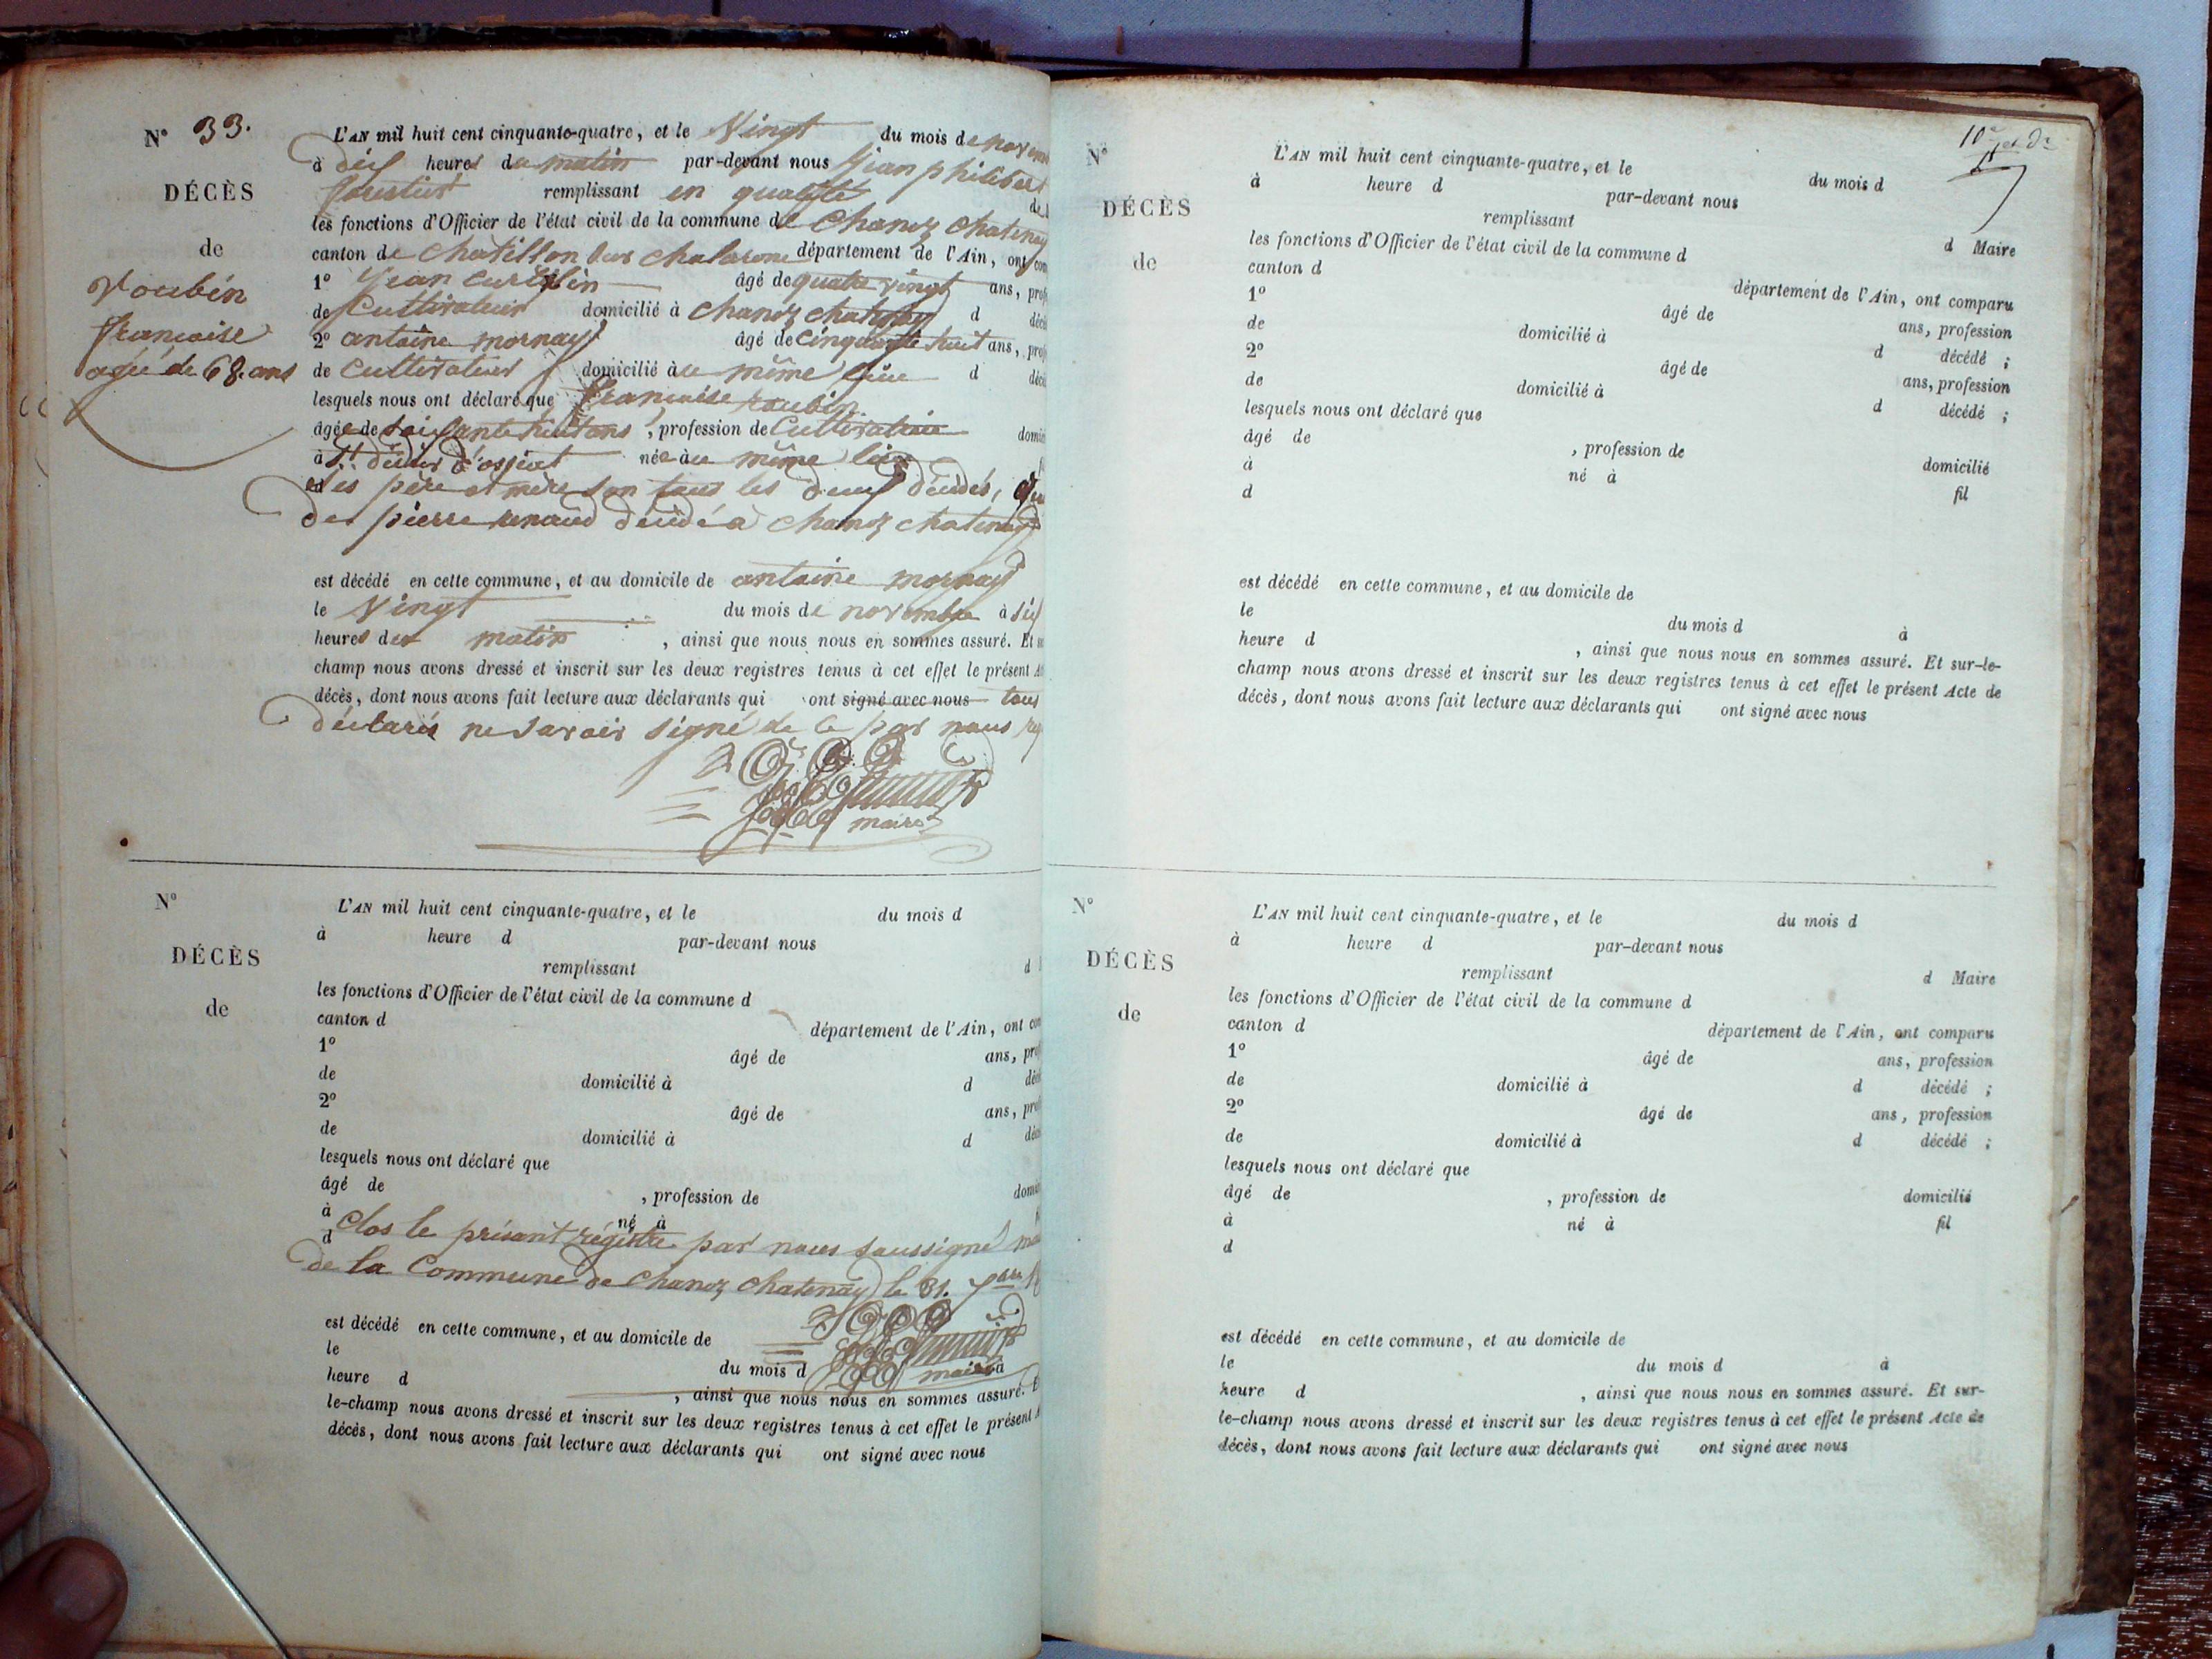 N° 33.
DÉCÈS
de
Roubin
francoise
agée de 68. ans
L'AN mil huit cent cinquante-quatre, et le Vingt du mois de novem
à dix heures du matin par-devant nous Jean philibert
forestier remplissant en qualité de
les fonctions d'Officier de l'état civil de la commune de Chanoz Chatenay
canton de Chatillon sur chalarone département de l'Ain, ont com
1° Jean âgé de quatre vingt ans, prof
de Cultivateur domicilié à Chanoz chatenay d décé
2° antoine mornay âgé de cinquante huit ans, prof
de Cultivateur domicilié à u même lieu d décé
lesquels nous ont déclaré que francoise roubin
âgée de soissante huit ans, profession de Cultivatrice domici
à St didier d'ossiat née à u même lieu f
d es père et mère son tous les deux décédés,
de pierre renaud décédé à chanoz chatenay
est décédé en cette commune, et au domicile de antoine mornay
le Vingt du mois de novembre à six
heures du matin, ainsi que nous nous en sommes assuré. Et
champ nous avons dressé et inscrit sur les deux registres tenus à cet effet le présent A
décès, dont nous avons fait lecture aux déclarants qui ont signé avec nous tous
déclarés ne savoir signé de ce par nous
maire
N°
DÉCÈS
de
L'AN mil huit cent cinquante-quatre, et le du mois d
à heure d par-devant nous
remplissant d
les fonctions d'Officier de l'état civil de la commune d
canton d département de l'Ain, ont com
1° âgé de ans, prof
de domicilié à d décé
2° âgé de ans, prof
de domicilié à d décé
lesquels nous ont déclaré que
âgé de , profession de domici
à né à
d Clos le présant régistre par nous soussigné
de la Commune de Chanoz Chatenay le 31.
est décédé en cette commune, et au domicile de
le du mois d à
maire
heure d , ainsi que nous nous en sommes assuré. E
le-champ nous avons dressé et inscrit sur les deux registres tenus à cet effet le présent A
décès, dont nous avons fait lecture aux déclarants qui ont signé avec nous
N°
DÉCÈS
de
L'AN mil huit cent cinquante-quatre, et le du mois d
à heure d par-devant nous
remplissant d Maire
les fonctions d'Officier de l'état civil de la commune d
canton d département de l'Ain, ont comparu
1° âgé de ans, profession
de domicilié à d décédé ;
2° âgé de ans, profession
de domicilié à d décédé ;
lesquels nous ont déclaré que
âgé de , profession de domicilié
à né à fil
d
est décédé en cette commune, et au domicile de
le du mois d à
heure d , ainsi que nous nous en sommes assuré. Et sur-le-
champ nous avons dressé et inscrit sur les deux registres tenus à cet effet le présent Acte de
décès, dont nous avons fait lecture aux déclarants qui ont signé avec nous
N°
DÉCÈS
de
L'AN mil huit cent cinquante-quatre, et le du mois d
à heure d par-devant nous
remplissant d Maire
les fonctions d'Officier de l'état civil de la commune d
canton d département de l'Ain, ont comparu
1° âgé de ans, profession
de domicilié à d décédé ;
2° âgé de ans, profession
de domicilié à d décédé ;
lesquels nous ont déclaré que
âgé de , profession de domicilié
à né à fil
d
est décédé en cette commune, et au domicile de
le du mois d à
heure d , ainsi que nous nous en sommes assuré. Et sur-
le-champ nous avons dressé et inscrit sur les deux registres tenus à cet effet le présent Acte de
décès, dont nous avons fait lecture aux déclarants qui ont signé avec nous